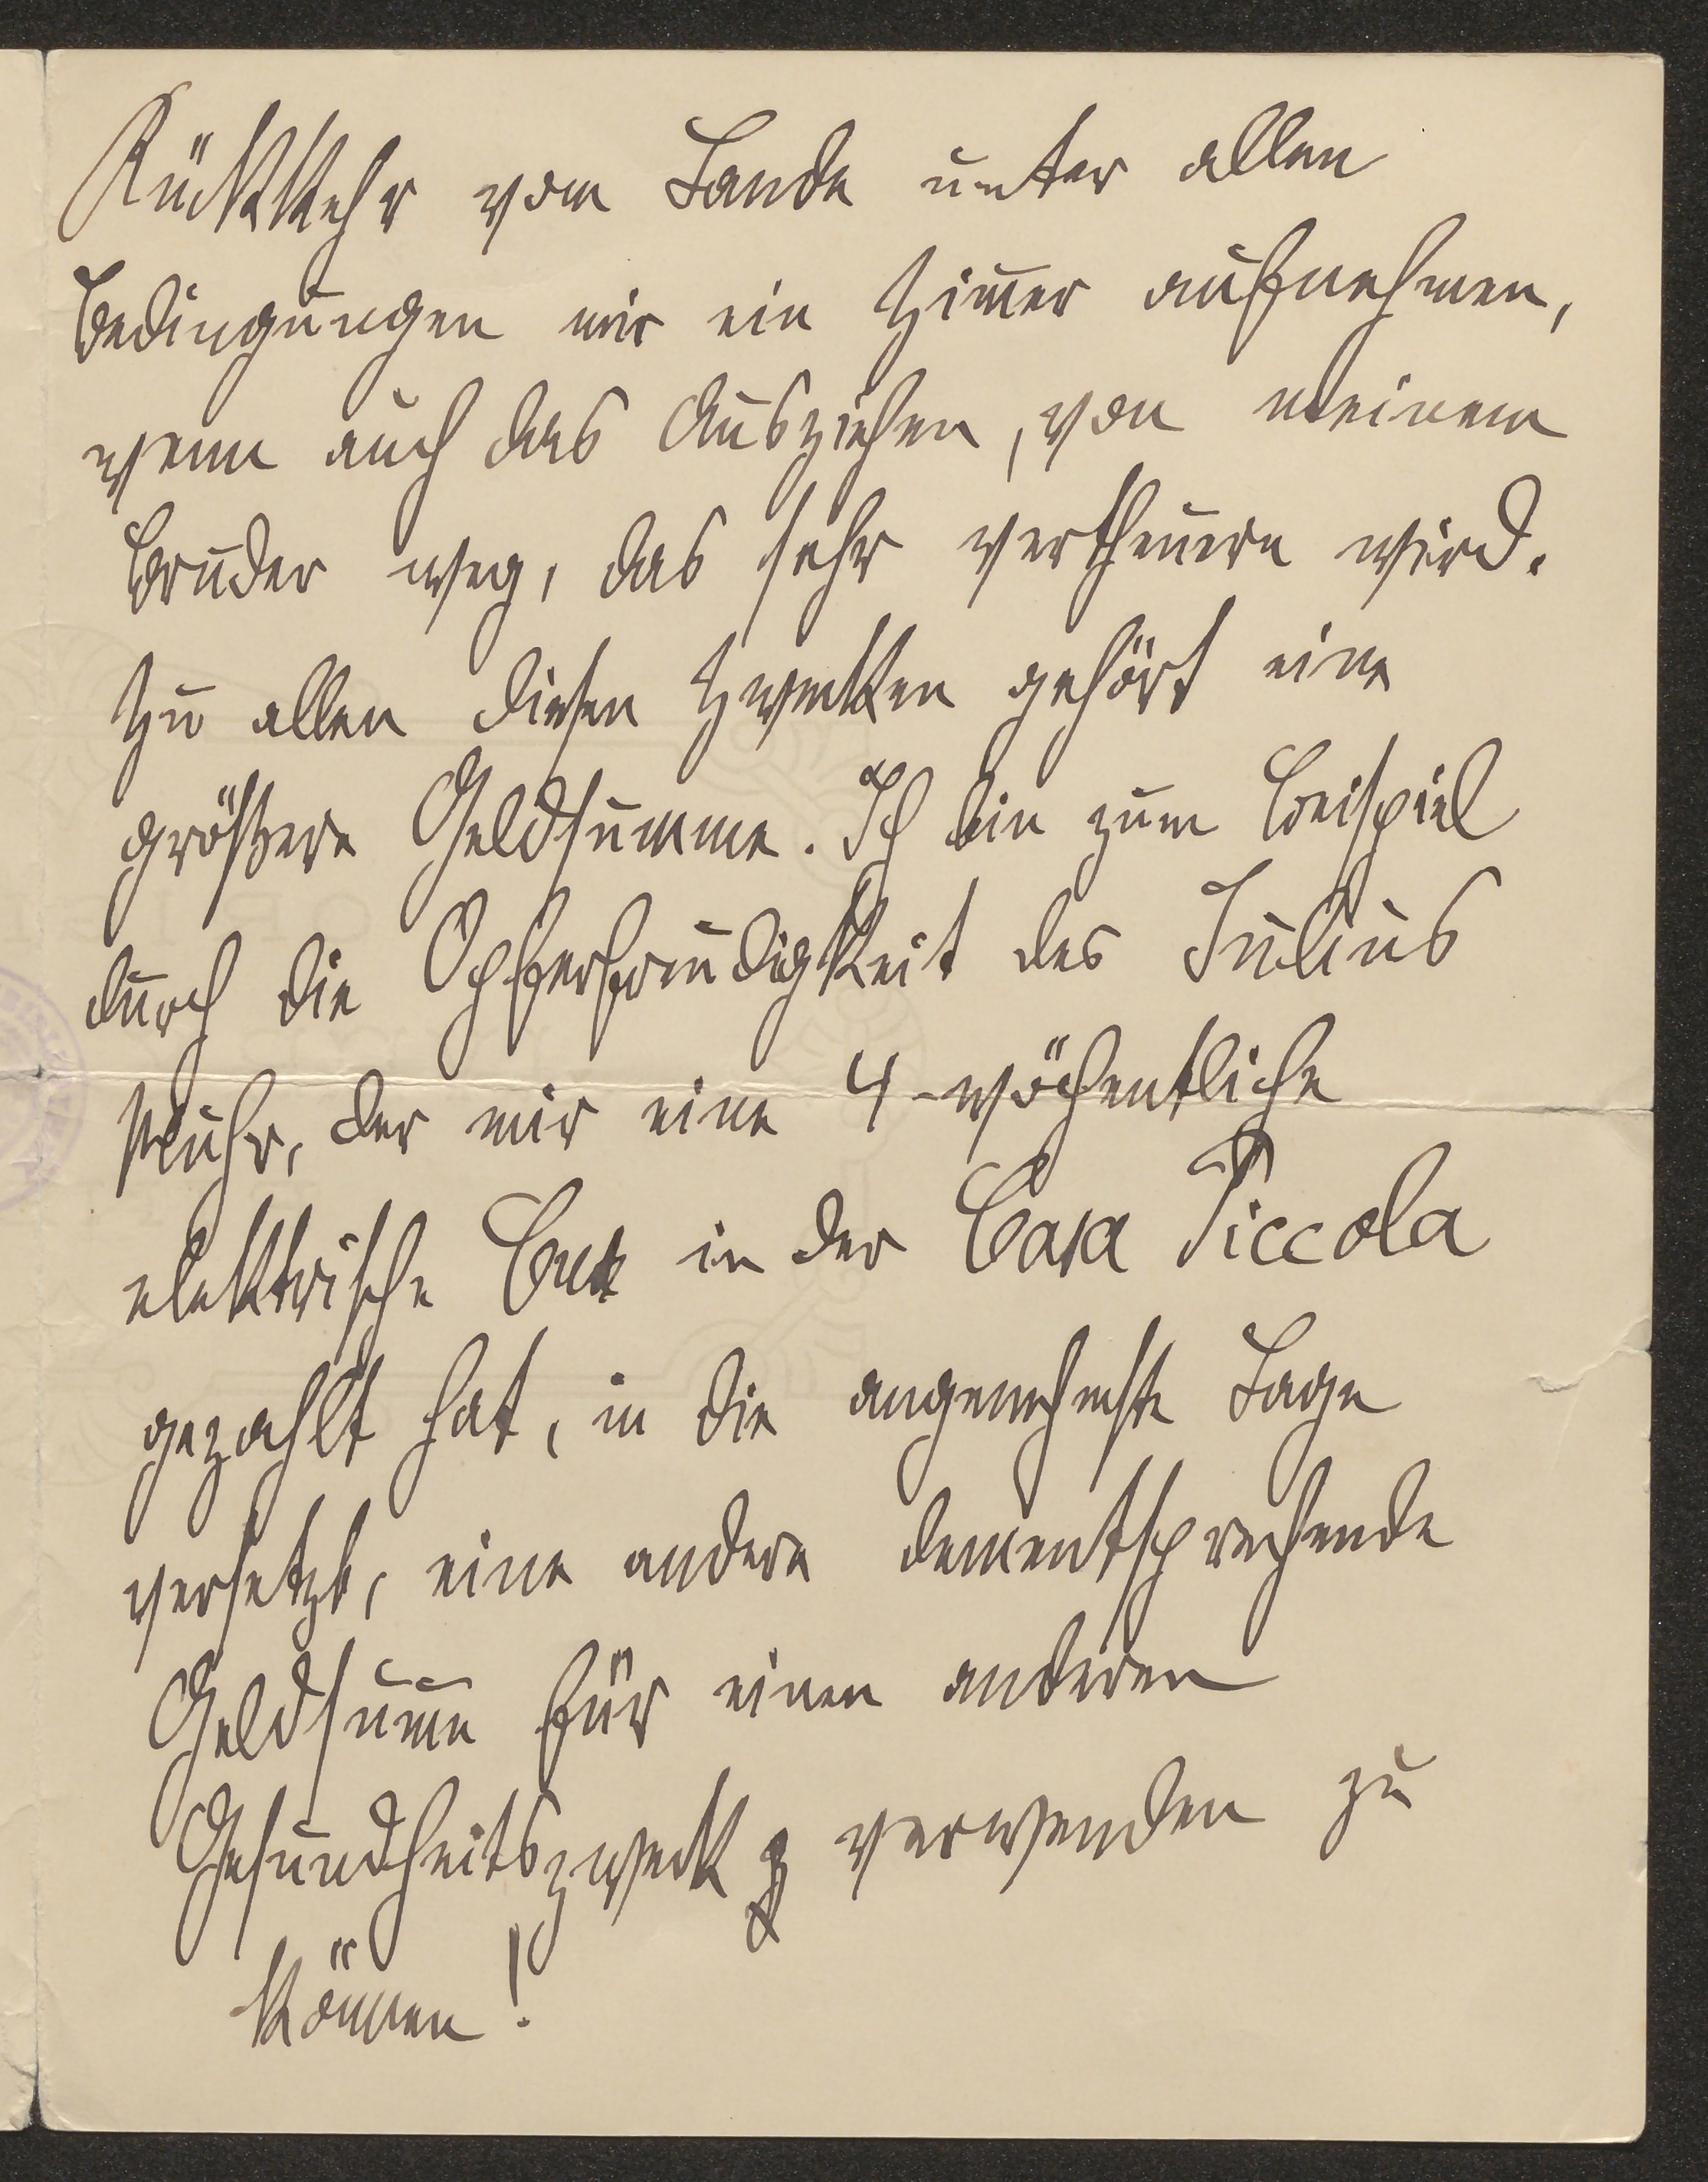 Rückkehr vom Lande unter allen
Bedingungen mir ein Zim̅er aufnehmen,
wenn auch das Ausziehen, von meinem
Bruder weg, das sehr vertheuern wird.
Zu allen diesen Zwecken gehört eine
größere Geldsumme. Ich bin zum Beispiel
durch die Opferfreudigkeit des Julius
Muhr, der mir eine 4-wöchentliche
elektrische Cur in der Casa Piccola
gezahlt hat, in die angenehmste Lage
versetzt, eine andere dementsprechende
Geldsum̅e für einen anderen
Gesundheitszweck verwenden zu
können!